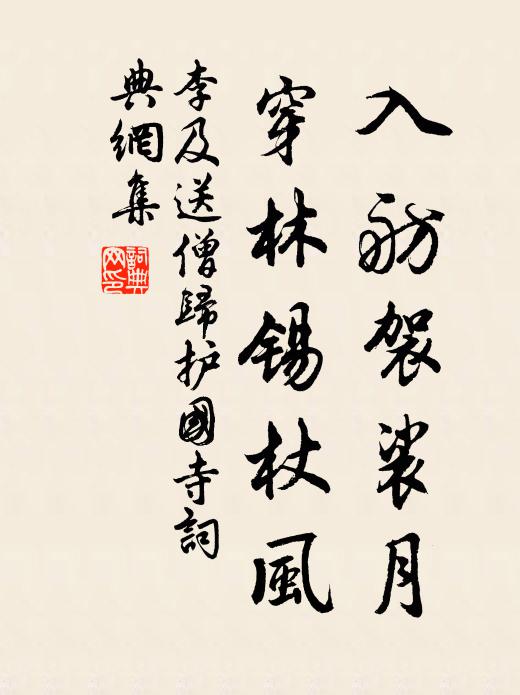 入舫袈裟月
穿林锡杖風
李及送僧歸护國寺詞
典網集
詞典网印